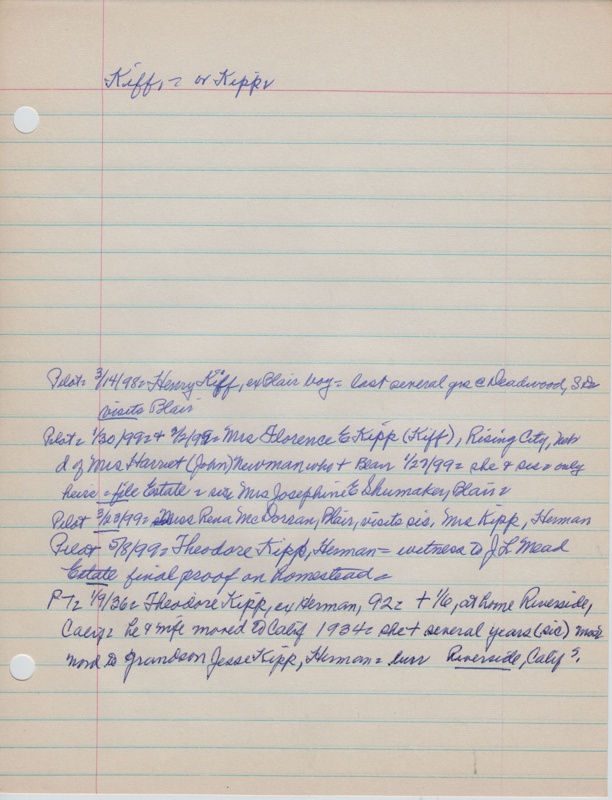 Kiff, = or Kipp,
Pilot = 3/14/98 = Henry Kiff, ex Blair boy = last several yrs @ Deadwood, S Da
visits Blair
Pilot = 1/30/99 = + = Mrs Florence E Kipp (Kiff), Rising City, Neb
d of Mrs Harriet (John) Newman who + Blair 1/27/99 = she & sis = only
heirs = file Estate = sis Mrs Josephine E Shumaker, Blair =
Pilot 3/23/99 = Miss Rena Mc Dorsan, Blair, visits sis. Mrs Kipp, Herman
Pilot 5/8/99 = Theodore Kipp, Herman = witness to J L Mead
Estate final proof on homestead =
P T = 1/9/36 = Theodore Kipp, ex Herman, 92 = + 1/6, at home Riverside,
= he & wife moved to Calif 1934 = she + several years (sic)
word to grandson Jesse Kipp, Herman = burr Riverside, Calif